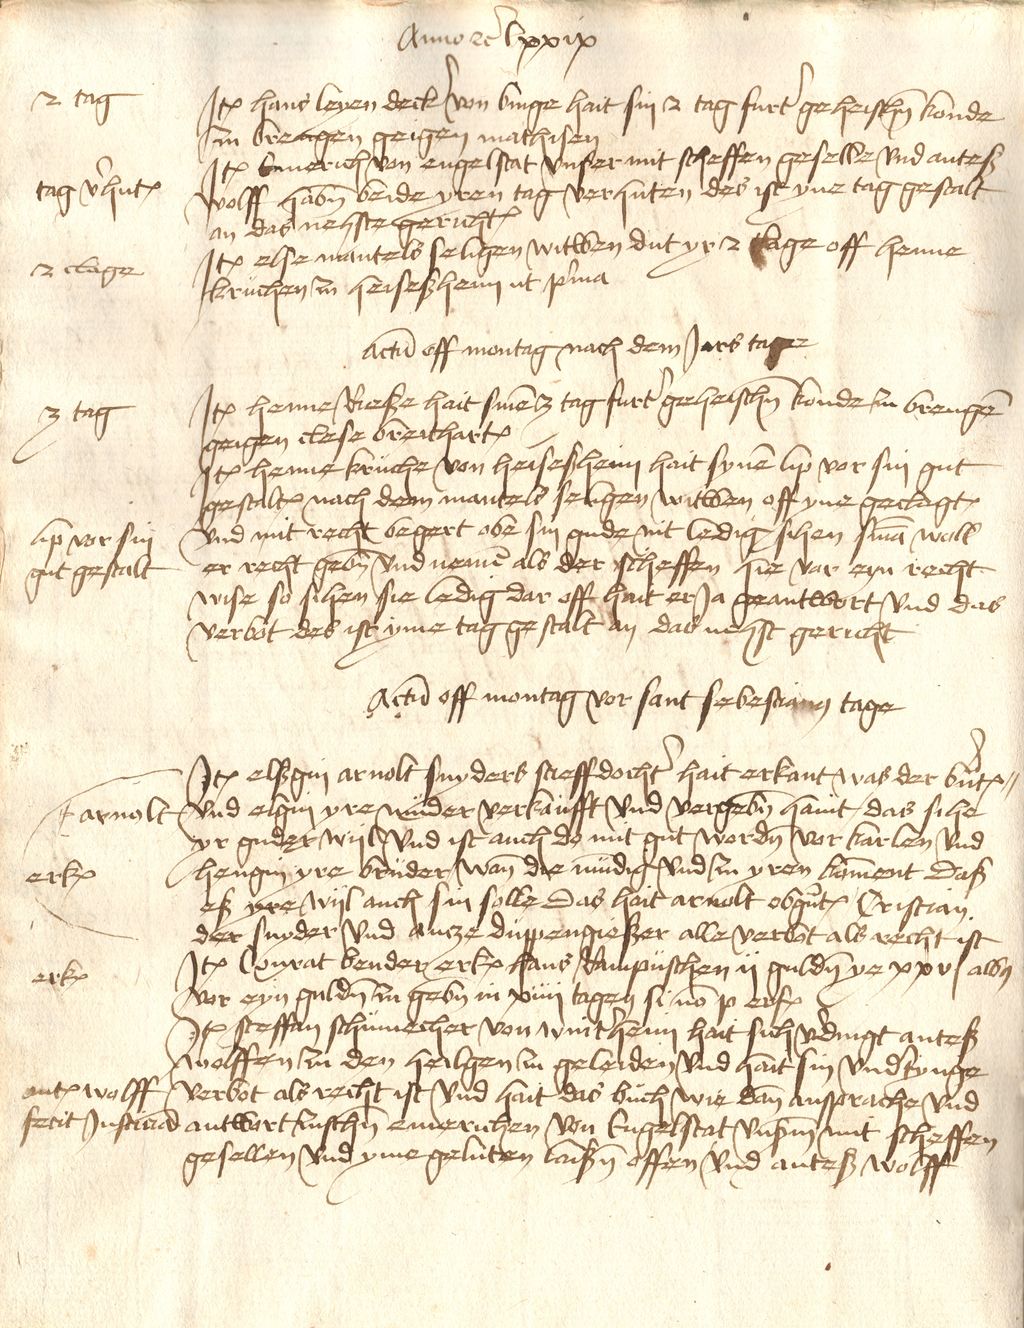 Anno etc lxxix
2 tag
Jtem hans leyen decker von binge hait sin 2 tag furter geheischen konde
zu brengen geigen mathisen
Jtem emerich von engelstat unser mit scheffen geselle und antes
tag verhut
wolff haben beide yren tag verhuten des ist yne tag gestalt
an das nehste gericht
2 clage
Jtem else mantels seligen witwen dut yr 2 clage off henne
kruchen zu heisesheim ut prima
Actum off montag nach dem Jars tage
3 tag
Jtem henne Rieße hait sinen 3 tag furter geheischen konde zu brengen
geigen clese breithart
Jtem henne kruche von heisesheim hait synen lip vor sin gut
gestalt nach dem mantels seligen witwen off yne geclagt
lip vor sin
und mit recht begert obe sin gude nit ledig sihen sinan woll
gut gestalt
er recht geben und nemen als der scheffen hie vor eyn recht
wise so sihen sie ledig dar off hait er Ja geantwort und das
verbot des ist yme tag gestalt an das nehst gericht
Actum off montag vor sant sebestianus tage
Jtem elßgin arnolt snyders stieff dochter hait erkant was der
arnolt
und elgin yre muder verkaufft und vergeben haint das sihe
yr guder wijl und ist auch do mit gut worden vor karlen und
erk
hengin yre bruder wan die mundig und zu yren koment daß
eß yre wijl auch sin solle das hait arnolt obgnt Cristian
der snyder und antze duppengießer alle verbot als recht ist
erk
Jtem Conrat bender erk hans Rampuschen ij gulden ye xxv alb
vor eyn gulden zu geben in xiiij tagen si non p erf
Jtem steffan schumecher von wintheim hait sich verdingt anteß
wolffen zu den heilgen zu geleiden und hait sin und kunge
ant wolff
verbot als recht ist und hait das buch wie dan ansprache und
fecit Justiciam
antwort zuschen emerichen von Engelstat unserm mit scheffen
gesellen und yme geluten laißen offen und anteß wolff